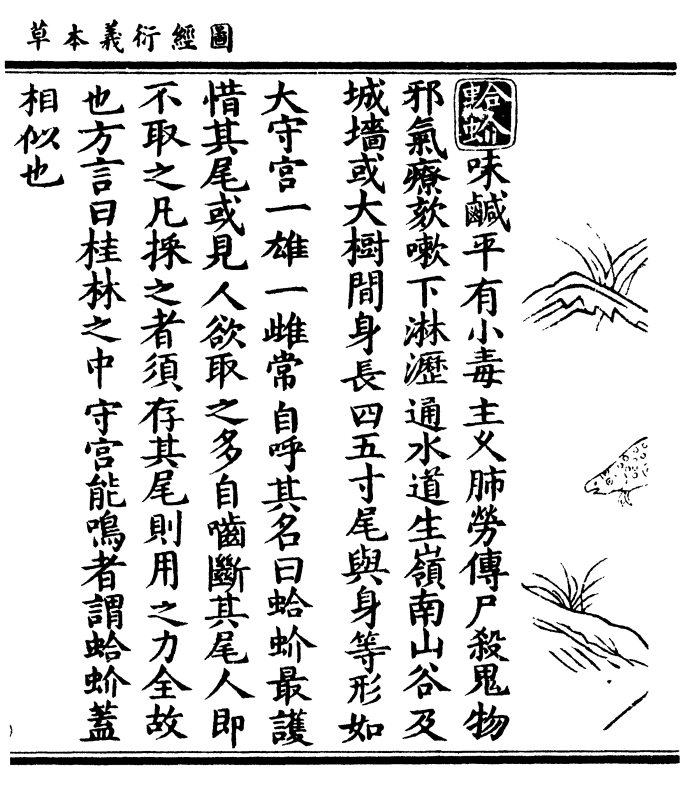 圖經衍義本草
蛤蚧味鹹平有小毒主久肺勞傳尸殺鬼物
邪氣療欬嗽下淋瀝通水道生嶺南山谷及
城墻或大樹間身長四五寸尾與身等形如
大守宮一雄一雌常自呼其名曰蛤蚧最護
惜其尾或見人欲取之多自嚙斷其尾人即
不取之凡採之者須存其尾則用之力全故
也方言曰桂林之中守宮能鳴者謂蛤蚧蓋
相似也